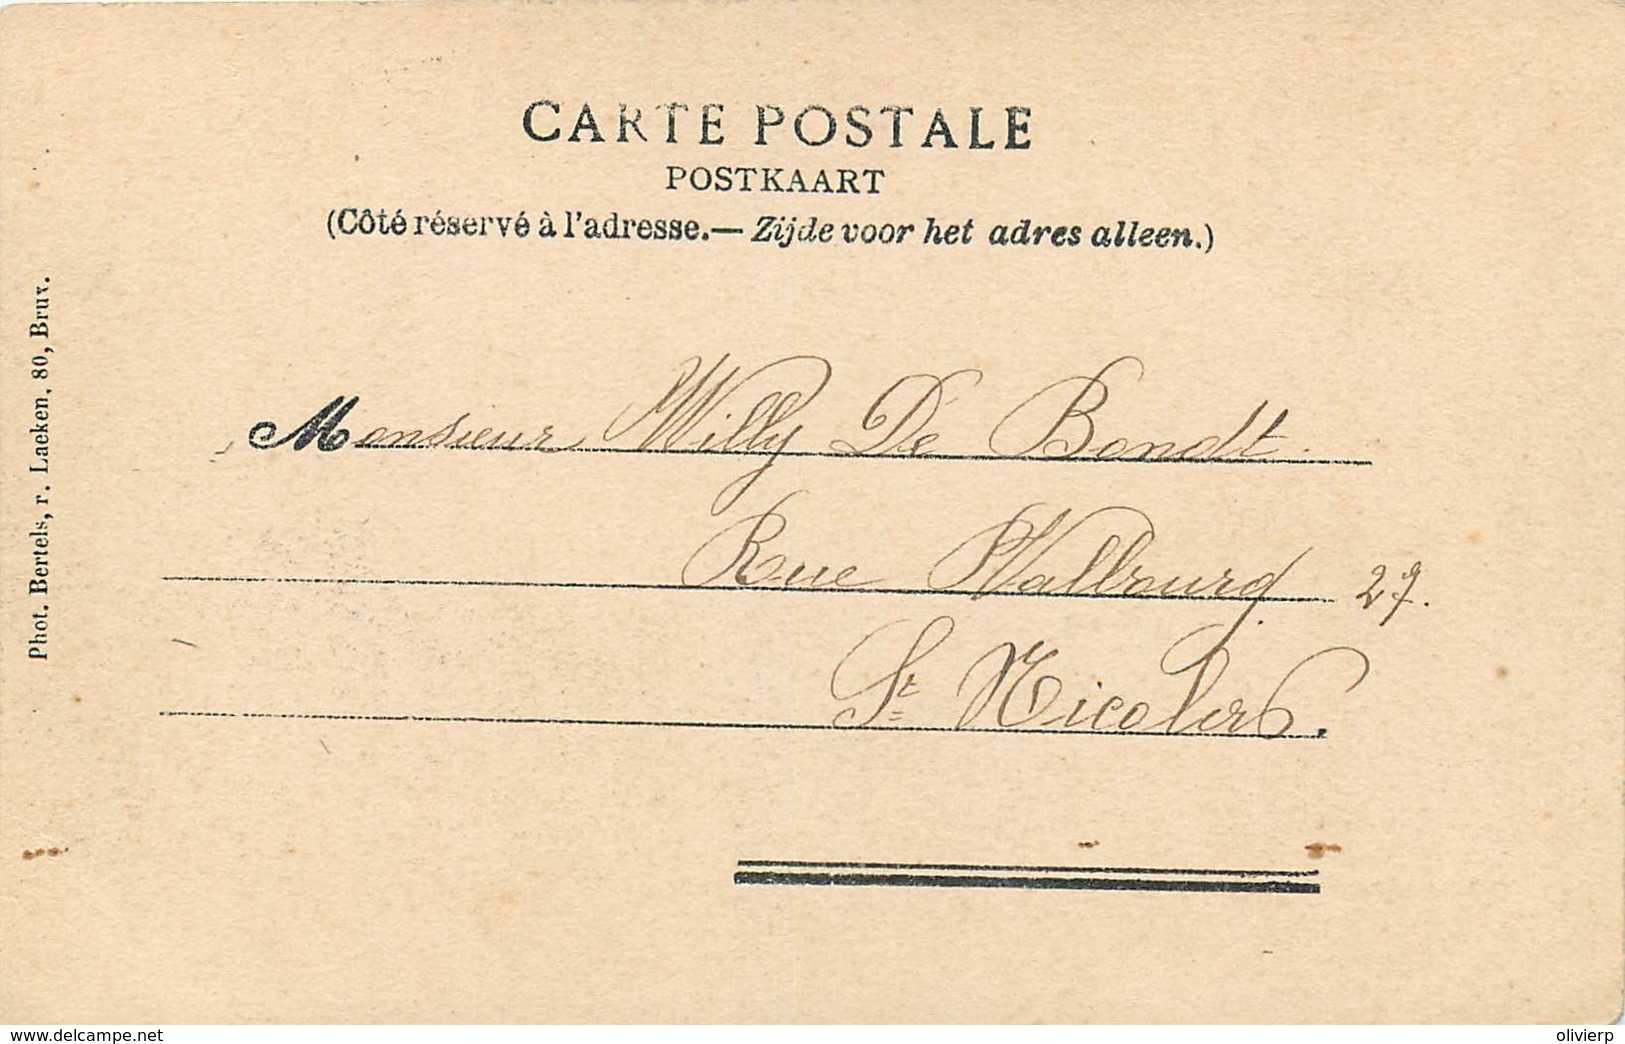 CARTE POSTALE
POSTKAART
(Côté réservé à l'adresse.— Zijde voor het adres alleen.)
Phot. Bertels, r. Laeken, 80, Brux.
Monsieur Willy De Bondt.
Rue Walbourg 27.
St Nicolas.
www.delcampe.net
olivierp